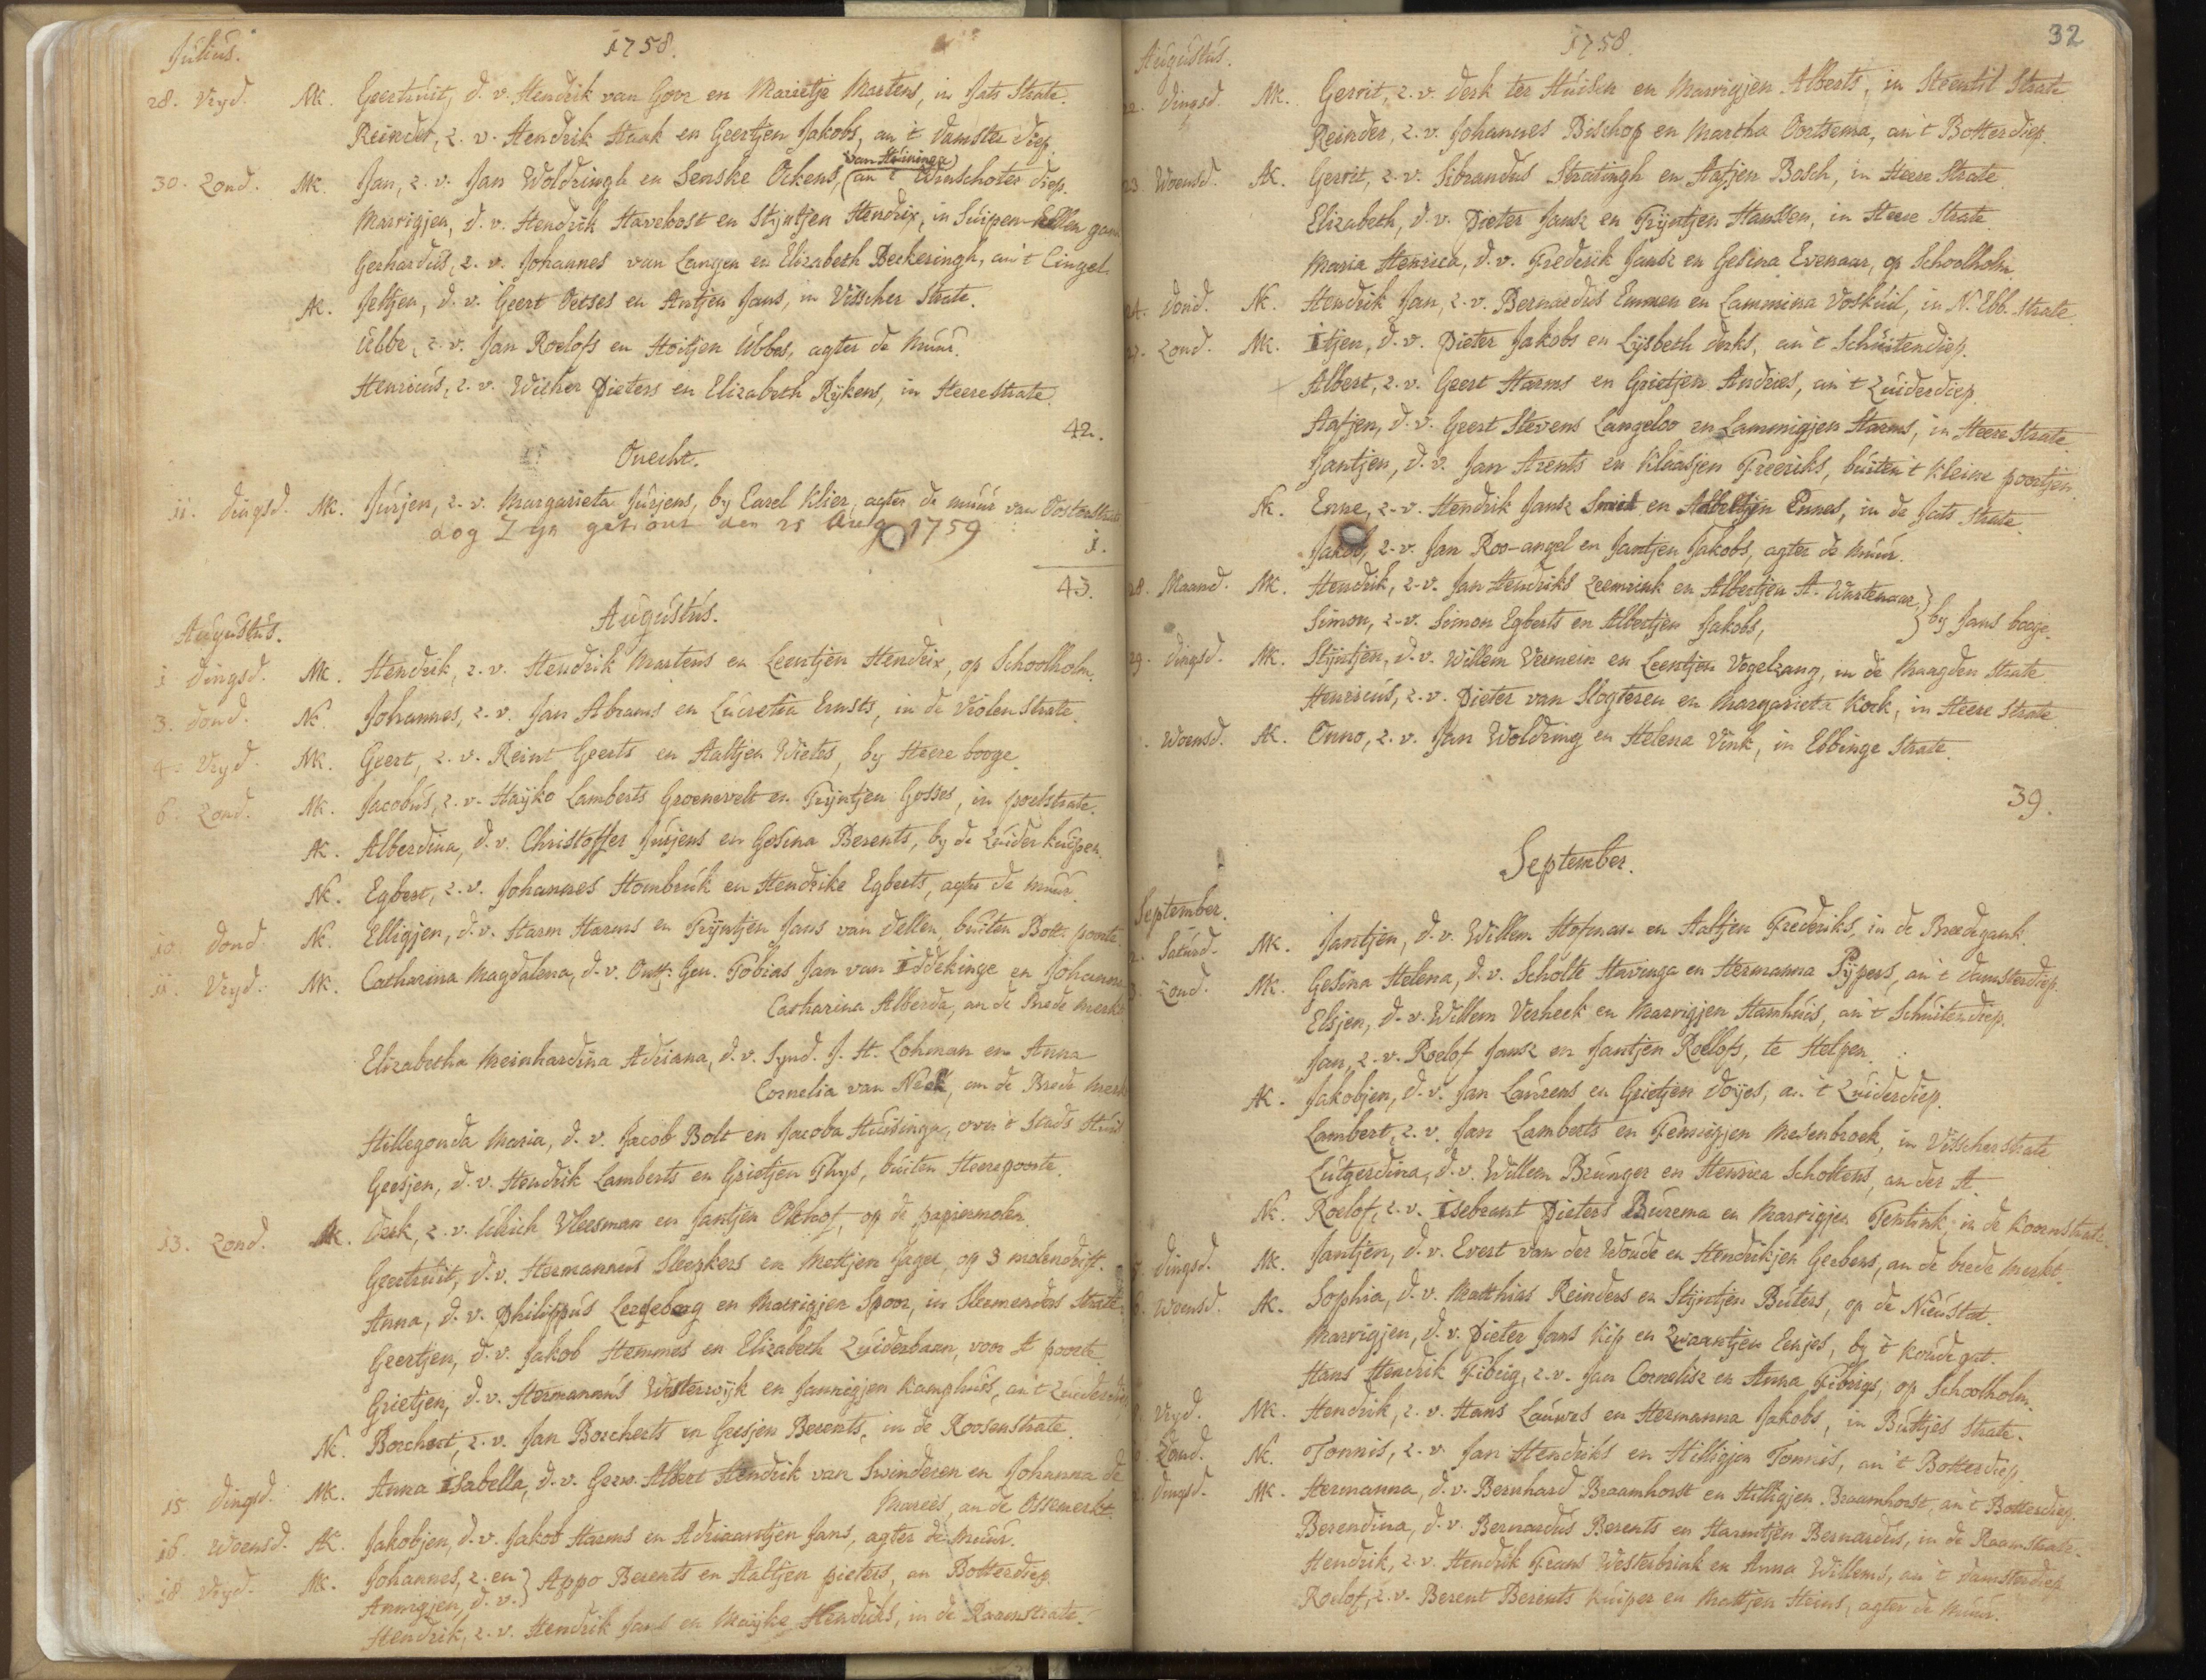 Julius. 1758.
28. Vryd. MK. Geertruit, d. v. Hendrik van Goor en Marietje Martens, in Jats Strate.
Reinder, z. v. Hendrik Haak en Geertjen Jakobs, an 't Damster diep.
30. Zond. MK. Jan, z. v. Jan Woldringh en Senske Ockens, (van Heininga) an 't Winschoter diep.
Marrigjen, d. v. Hendrik Haverkost en Stijntjen Hendrix, in Suipen-
Gerhardus, z. v. Johannes van Langen en Elizabeth Beckeringh, an 't Cingel
AK. Jeltjen, d. v. Geert Oetses en Antjen Jans, in Visscher Strate.
Ubbe, z. v. Jan Roelofs en Hoitjen Ubbes, agter de Muur.
Henricus, z. v. Wicher Pieters en Elizabeth Rijkens, in Heerestrate.
42.
Onecht.
11. Dingsd. MK. Jurjen, z. v. Margarieta Jurjens, by Carel Klier, agter de muur van Oosterstrate
dog I yn getrout den 25 Aug 1759
1.
43.
Augustus.
Augustus.
1 Dingsd. MK. Hendrik, z. v. Hendrik Martens en Leentjen Hendrix, op Schoolholm.
3. Dond. NK. Johannes, z. v. Jan Abrams en Lucretia Ernsts, in de Violenstrate.
4. Vryd. MK. Geert, z. v. Reint Geerts en Aaltjen Wiets, by Heere booge.
6. Zond. MK. Jacobus, z. v. Haijko Lamberts Groenevelt en Trijntjen Gosses, in poelstrate.
AK. Alberdina, d. v. Christoffer Jurjens en Gesina Berents, by de Zuider kuipen.
NK. Egbert, z. v. Johannes Hombruk en Hendrike Egberts, agter de muur.
10. Dond. NK. Elligjen, d. v. Harm Harms en Trijntjen Jans van Dellen, buiten Bott. poorte.
11. Vryd. MK. Catharina Magdalena, d. v. Ontf. Gen. Tobias Jan van Iddekinge en Johanna
Catharina Alberda, an de Brede Merkt
Elizabetha Meinhardina Adriana, d. v. Synd. J. H. Lohman en Anna
Cornelia van Neck, an de Brede Merkt
Hillegonda Maria, d. v. Jacob Bolt en Jacoba Huisinga, over 't Stads Huis
Geesjen, d. v. Hendrik Lamberts en Grietjen Thijs, buiten Heerepoorte.
13. Zond. AK. Derk, z. v. Ulrich Vleesman en Jantjen Olthof, op de papiermolen.
Geertruit, d. v. Hermannus Sleegkers en Mettjen Jager, op 3 molendrift.
Anna, d. v. Philippus Lergeborg en Marrigjen Spoor, in Sleemenders Strate.
Geertjen, d. v. Jakob Hemmes en Elizabeth Zuiderbaan, voor A poorte.
Grietjen, d. v. Hermannus Westerwijk en Jannigjen Kamphuis, an 't Zuiderdiep
NK. Borchert, z. v. Jan Borcherts en Gresjen Berents, in de Roosenstrate.
15. Dingsd. MK. Anna Isabella, d. v. Gezw. Albert Hendrik van Swinderen en Johanna de
Marees, an de Ossemerkt.
16. Woensd. AK. Jakobjen, d. v. Jakob Harms en Adriaantjen Jans, agter de Muur.
18 Vryd. MK. Johannes, z. en } Appo Berents en Aaltjen pieters, an Botterdiep.
Annigjen, d. v. }
Hendrik, z. v. Hendrik Jans en Maijke Hendriks, in de Raamstrate.
32
Augustus. 1758.
22. Dingsd. MK. Gerrit, z. v. Derk ter Huisen en Marrigjen Alberts, in Steentil Strate
Reinder, z. v. Johannes Bischop en Martha Oortsema, an 't Botterdiep.
23. Woensd. AK. Gerrit, z. v. Sibrandus Stratingh en Aafjen Bosch, in Heere Strate.
Elizabeth, d. v. Pieter Jansz en Trijntjen Hanssen, in Heere Strate.
Maria Henrica, d. v. Frederik Jansz en Gesina Evenaar, op Schoolholm.
24. Dond. NK. Hendrik Jan, z. v. Bernardus Emmen en Lammina Voskuil, in N. Ebb. strate.
27. Zond. MK. Itjen, d. v. Pieter Jakobs en Lijsbeth Derks, an 't Schuitendiep.
Albert, z. v. Geert Harms en Grietjen Andries, an 't Zuiderdiep.
Aafjen, d. v. Geert Stevens Langeloo en Lammigjen Harms, in Heere Strate.
Jantjen, d. v. Jan Arents en Klaasjen Freeriks, buiten 't Kleine poortjen.
NK. Enne, z. v. Hendrik Jansz Smid en Albeltjen Ennes, in de Jats Strate.
Jakob, z. v. Jan Roo-angel en Jantjen Jakobs, agter de Muur.
28. Maand. MK. Hendrik, z. v. Jan Hendriks Leemrink en Albertjen A. Wartenaar, } by Jans booge.
Simon, z. v. Simon Egberts en Albertjen Jakobs, }
29. Dingsd. MK. Stijntjen, d. v. Willem Vermein en Leentjen Vogelzang, in de Maagden Strate.
Henricus, z. v. Pieter van Slogteren en Margarieta Kock, in Heere Strate.
Woensd. AK. Onno, z. v. Jan Woldring en Helena Vink, in Ebbinge Strate.
39.
September.
September.
2. Saturd. MK. Jantjen, d. v. Willem Hofman en Aaltjen Frederiks, in de Breedegank.
3. Zond. MK. Gesina Helena, d. v. Scholte Havinga en Hermanna Pijpers, an 't Damsterdiep.
Elsjen, d. v. Willem Verheek en Marrigjen Hamhuis, an 't Schuitendiep.
Jan, z. v. Roelof Jansz en Jantjen Roelofs, te Helpen.
AK. Jakobjen, d. v. Jan Laurens en Grietjen Doijes, an 't Zuiderdiep.
Lambert, z. v. Jan Lamberts en Fennigjen Mesenbroek, in Visscherstrate
Lutgerdina, d. v. Willem Brunger en Henrica Scholtens, an der A.
NK. Roelof, z. v. Isebrant Pieters Burema en Marrigjen Tentink, in de Koornstrate.
5. Dingsd. MK. Jantjen, d. v. Evert van der Woude en Hendrikjen Gerbens, an de brede Merkt.
6. Woensd. AK. Sophia, d. v. Matthias Reinders en Stijntjen Buters, op de Nieustat.
Marrigjen, d. v. Pieter Jans Kip en Zwaantjen Eenjes, by 't Koude gat.
Hans Hendrik Fibrig, z. v. Jan Cornelisz en Anna Fibrigs, op Schoolholm.
8. Vryd. MK. Hendrik, z. v. Hans Lauwes en Hermanna Jakobs, in Buttjes Strate.
Zond. NK. Tonnis, z. v. Jan Hendriks en Hilligjen Tonnis, an 't Botterdiep.
Dingsd. MK. Hermanna, d. v. Bernhard Braamhorst en Hilligjen Braamhorst, an 't Botterdiep.
Berendina, d. v. Bernardus Berents en Harmtjen Bernardus, in de Raamstrate.
Hendrik, z. v. Hendrik Frans Westerbrink en Anna Willems, an 't Damsterdiep
Roelof, z. v. Berent Berents Kuiper en Mattjen Heins, agter de Muur.